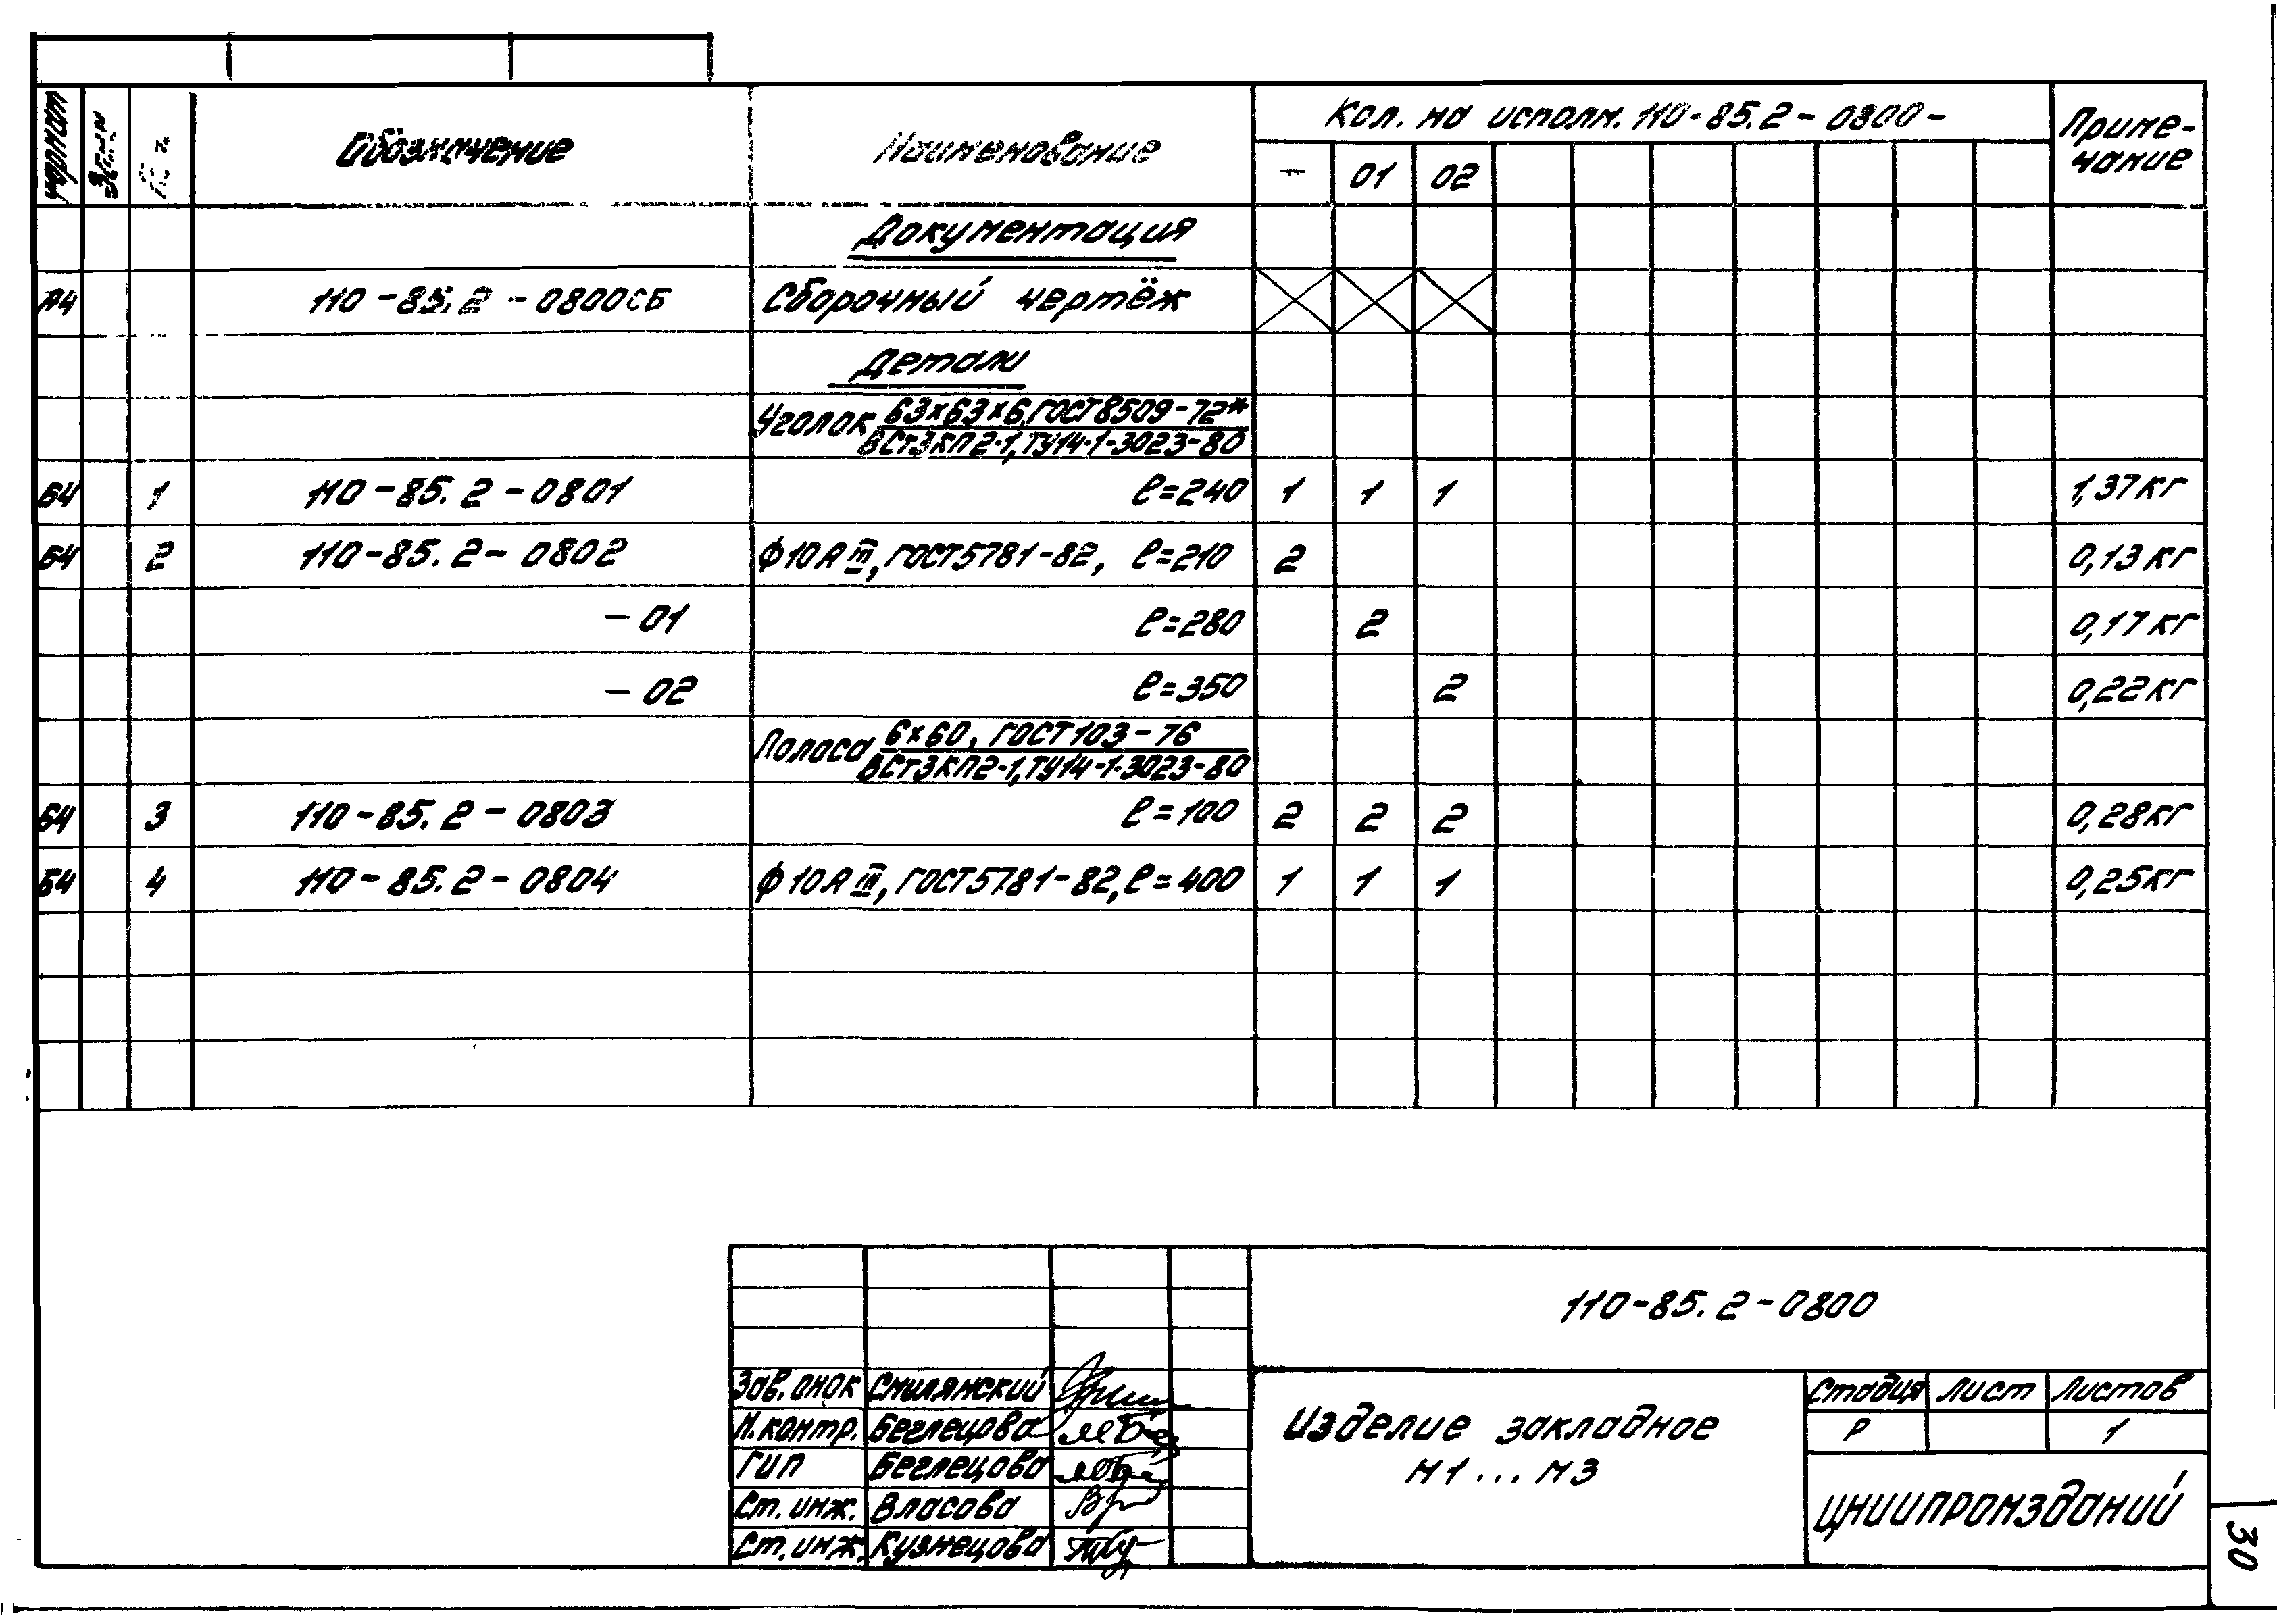 Формат Зона Поз. Обозначение Наименование Кол. на исполн. 110-85.2-0800- Приме-
чание
- 01 02
Документация
А4 110-85.2-0800СБ Сборочный чертёж
Детали
Уголок 63х63х6, ГОСТ 8509-72*
ВСт3кп2-1, ТУ14-1-3023-80
Б4 1 110-85.2-0801 ℓ=240 1 1 1 1,37кг
Б4 2 110-85.2-0802 Ф10АIII, ГОСТ5781-82, ℓ=210 2 0,13кг
-01 ℓ=280 2 0,17кг
-02 ℓ=350 2 0,22кг
Полоса 6х60, ГОСТ 103-76
ВСт3кп2-1, ТУ14-1-3023-80
Б4 3 110-85.2-0803 ℓ=100 2 2 2 0,28кг
Б4 4 110-85.2-0804 Ф10АIII, ГОСТ5781-82, ℓ=400 1 1 1 0,25кг
110-85.2-0800
Зав. Смилянский
Н.контр. Беглецова
ГИП Беглецова
Ст. инж. Власова
Ст. инж. Кузнецова
Изделие закладное
М1...М3
Стадия Лист Листов
Р 1
ЦНИИПРОМЗДАНИЙ
30